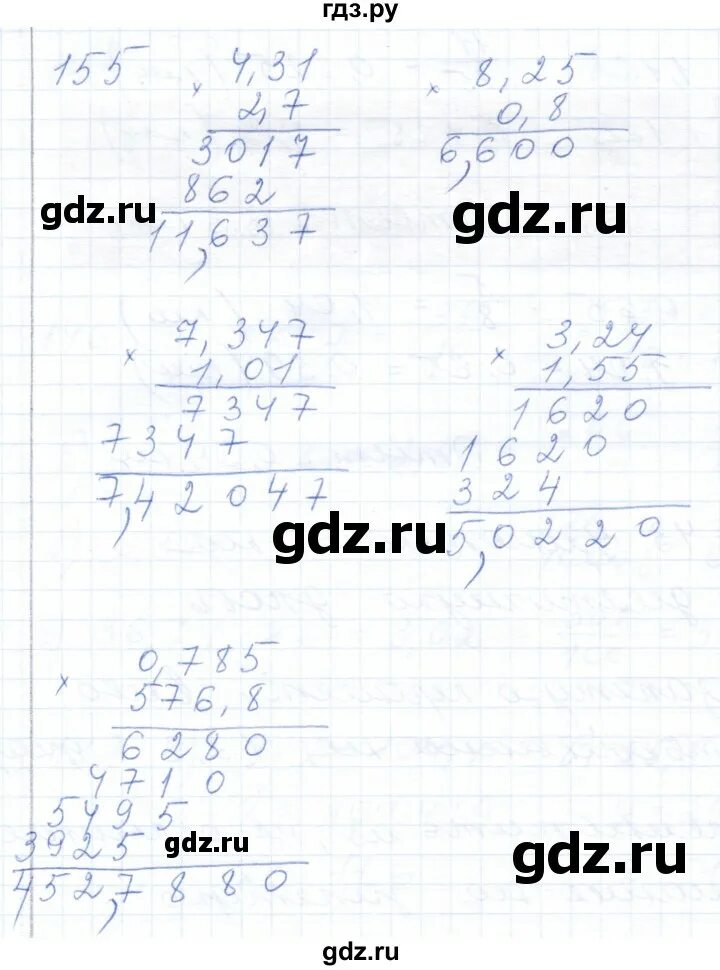 гдз.ру
155
4,31
× 2,7
3017
862
11,637
8,25
× 0,8
6,600
gdz.ru
gdz.ru
7,347
× 1,01
7347
7347
7,42047
3,24
× 1,55
1620
1620
324
5,0220
gdz.ru
0,785
× 576,8
6280
4710
5495
3925
452,7880
gdz.ru
gdz.ru
gdz.ru